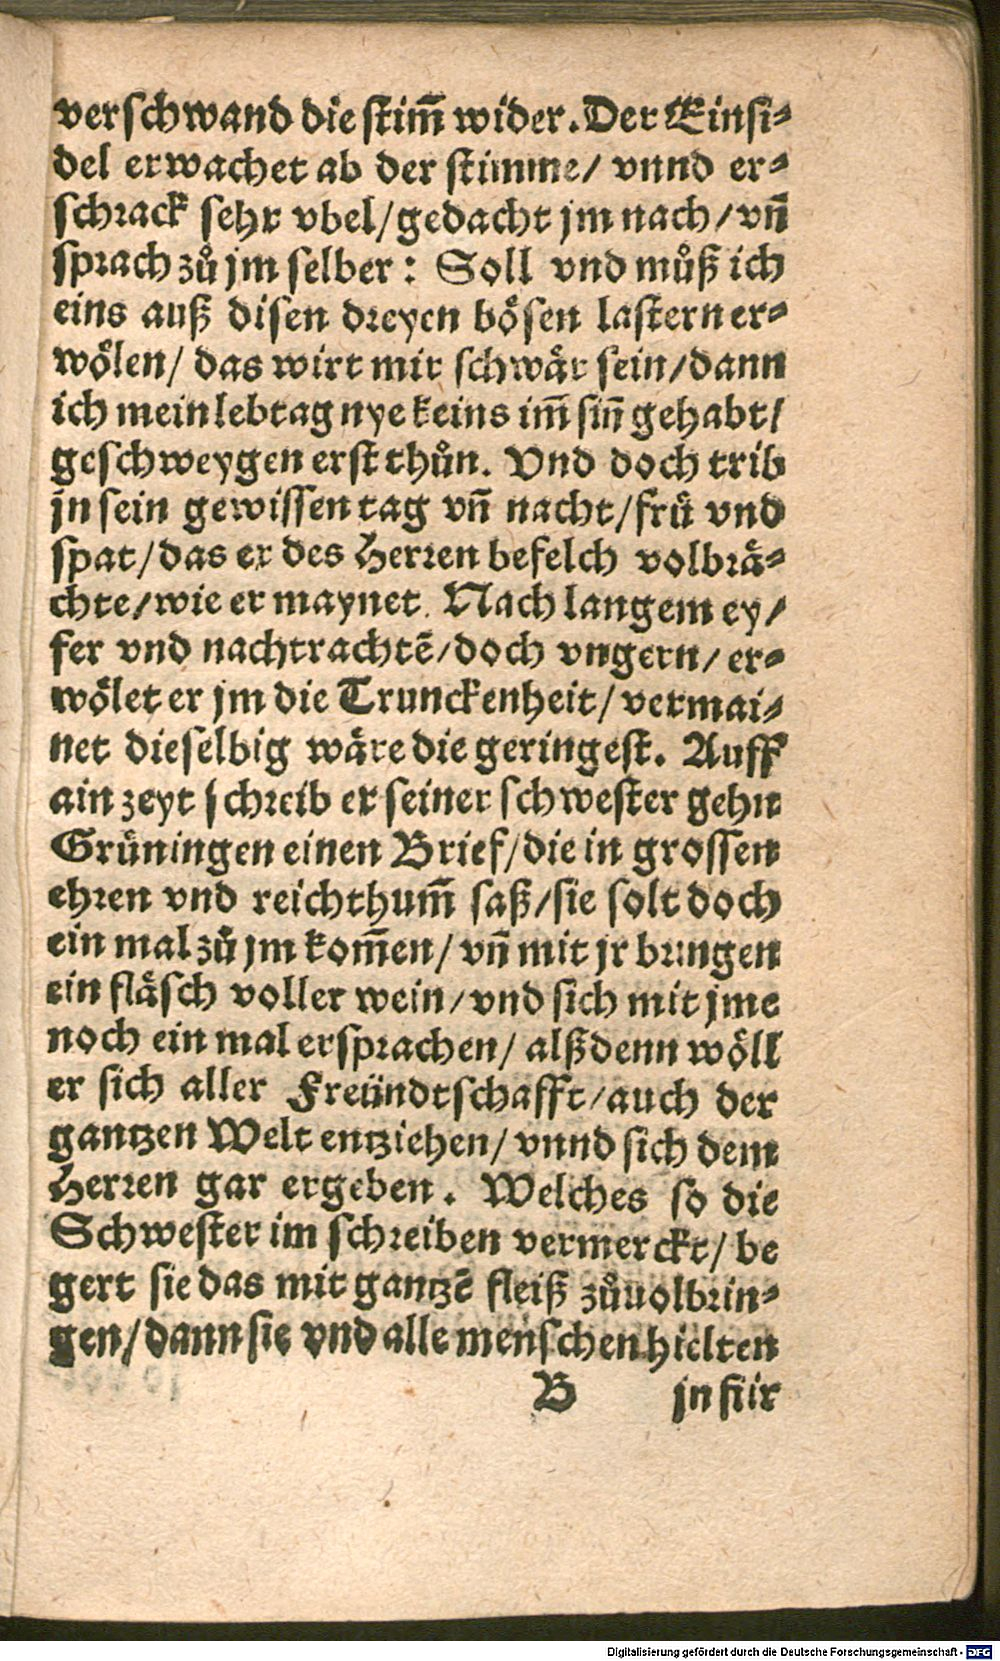 verschwand die stim̃ wider. Der Einsi⸗
del erwachet ab der stimme/ vnnd er⸗
schrack sehr vbel/ gedacht jm nach/ vñ
sprach zů jm selber: Soll vnd můß ich
eins auß disen dreyen bösen lastern er⸗
wölen/ das wirt mir schwår sein/ dann
ich mein lebtag nye keins im̃ siñ gehabt/
geschweygen erst thůn. Vnd doch trib
jn sein gewissen tag vñ nacht/ frů vnd
spat/ das er des Herren befelch volbrå⸗
chte/ wie er maynet. Nach langem ey/
fer vnd nachtrachtẽ/ doch vngern/ er⸗
wölet er jm die Trunckenheit/ vermai⸗
net dieselbig wåre die geringest. Auff
ain zeyt schreib er seiner schwester gehn
Grüningen einen Brief/ die in grossen
ehren vnd reichthum̃ saß/ sie solt doch
ein mal zů jm kom̃en/ vñ mit jr bringen
ein flåsch voller wein/ vnd sich mit jme
noch ein mal ersprachen/ alßdenn wöll
er sich aller Freündtschafft/ auch der
gantzen Welt entziehen/ vnnd sich dem
Herren gar ergeben. Welches so die
Schwester im schreiben vermerckt/ be
gert sie das mit gantzẽ fleiß zůuolbrin⸗
gen/ dann sie vnd alle menschen hielten
B jn für
Digitalisierung gefördert durch die Deutsche Forschungsgemeinschaft - DFG